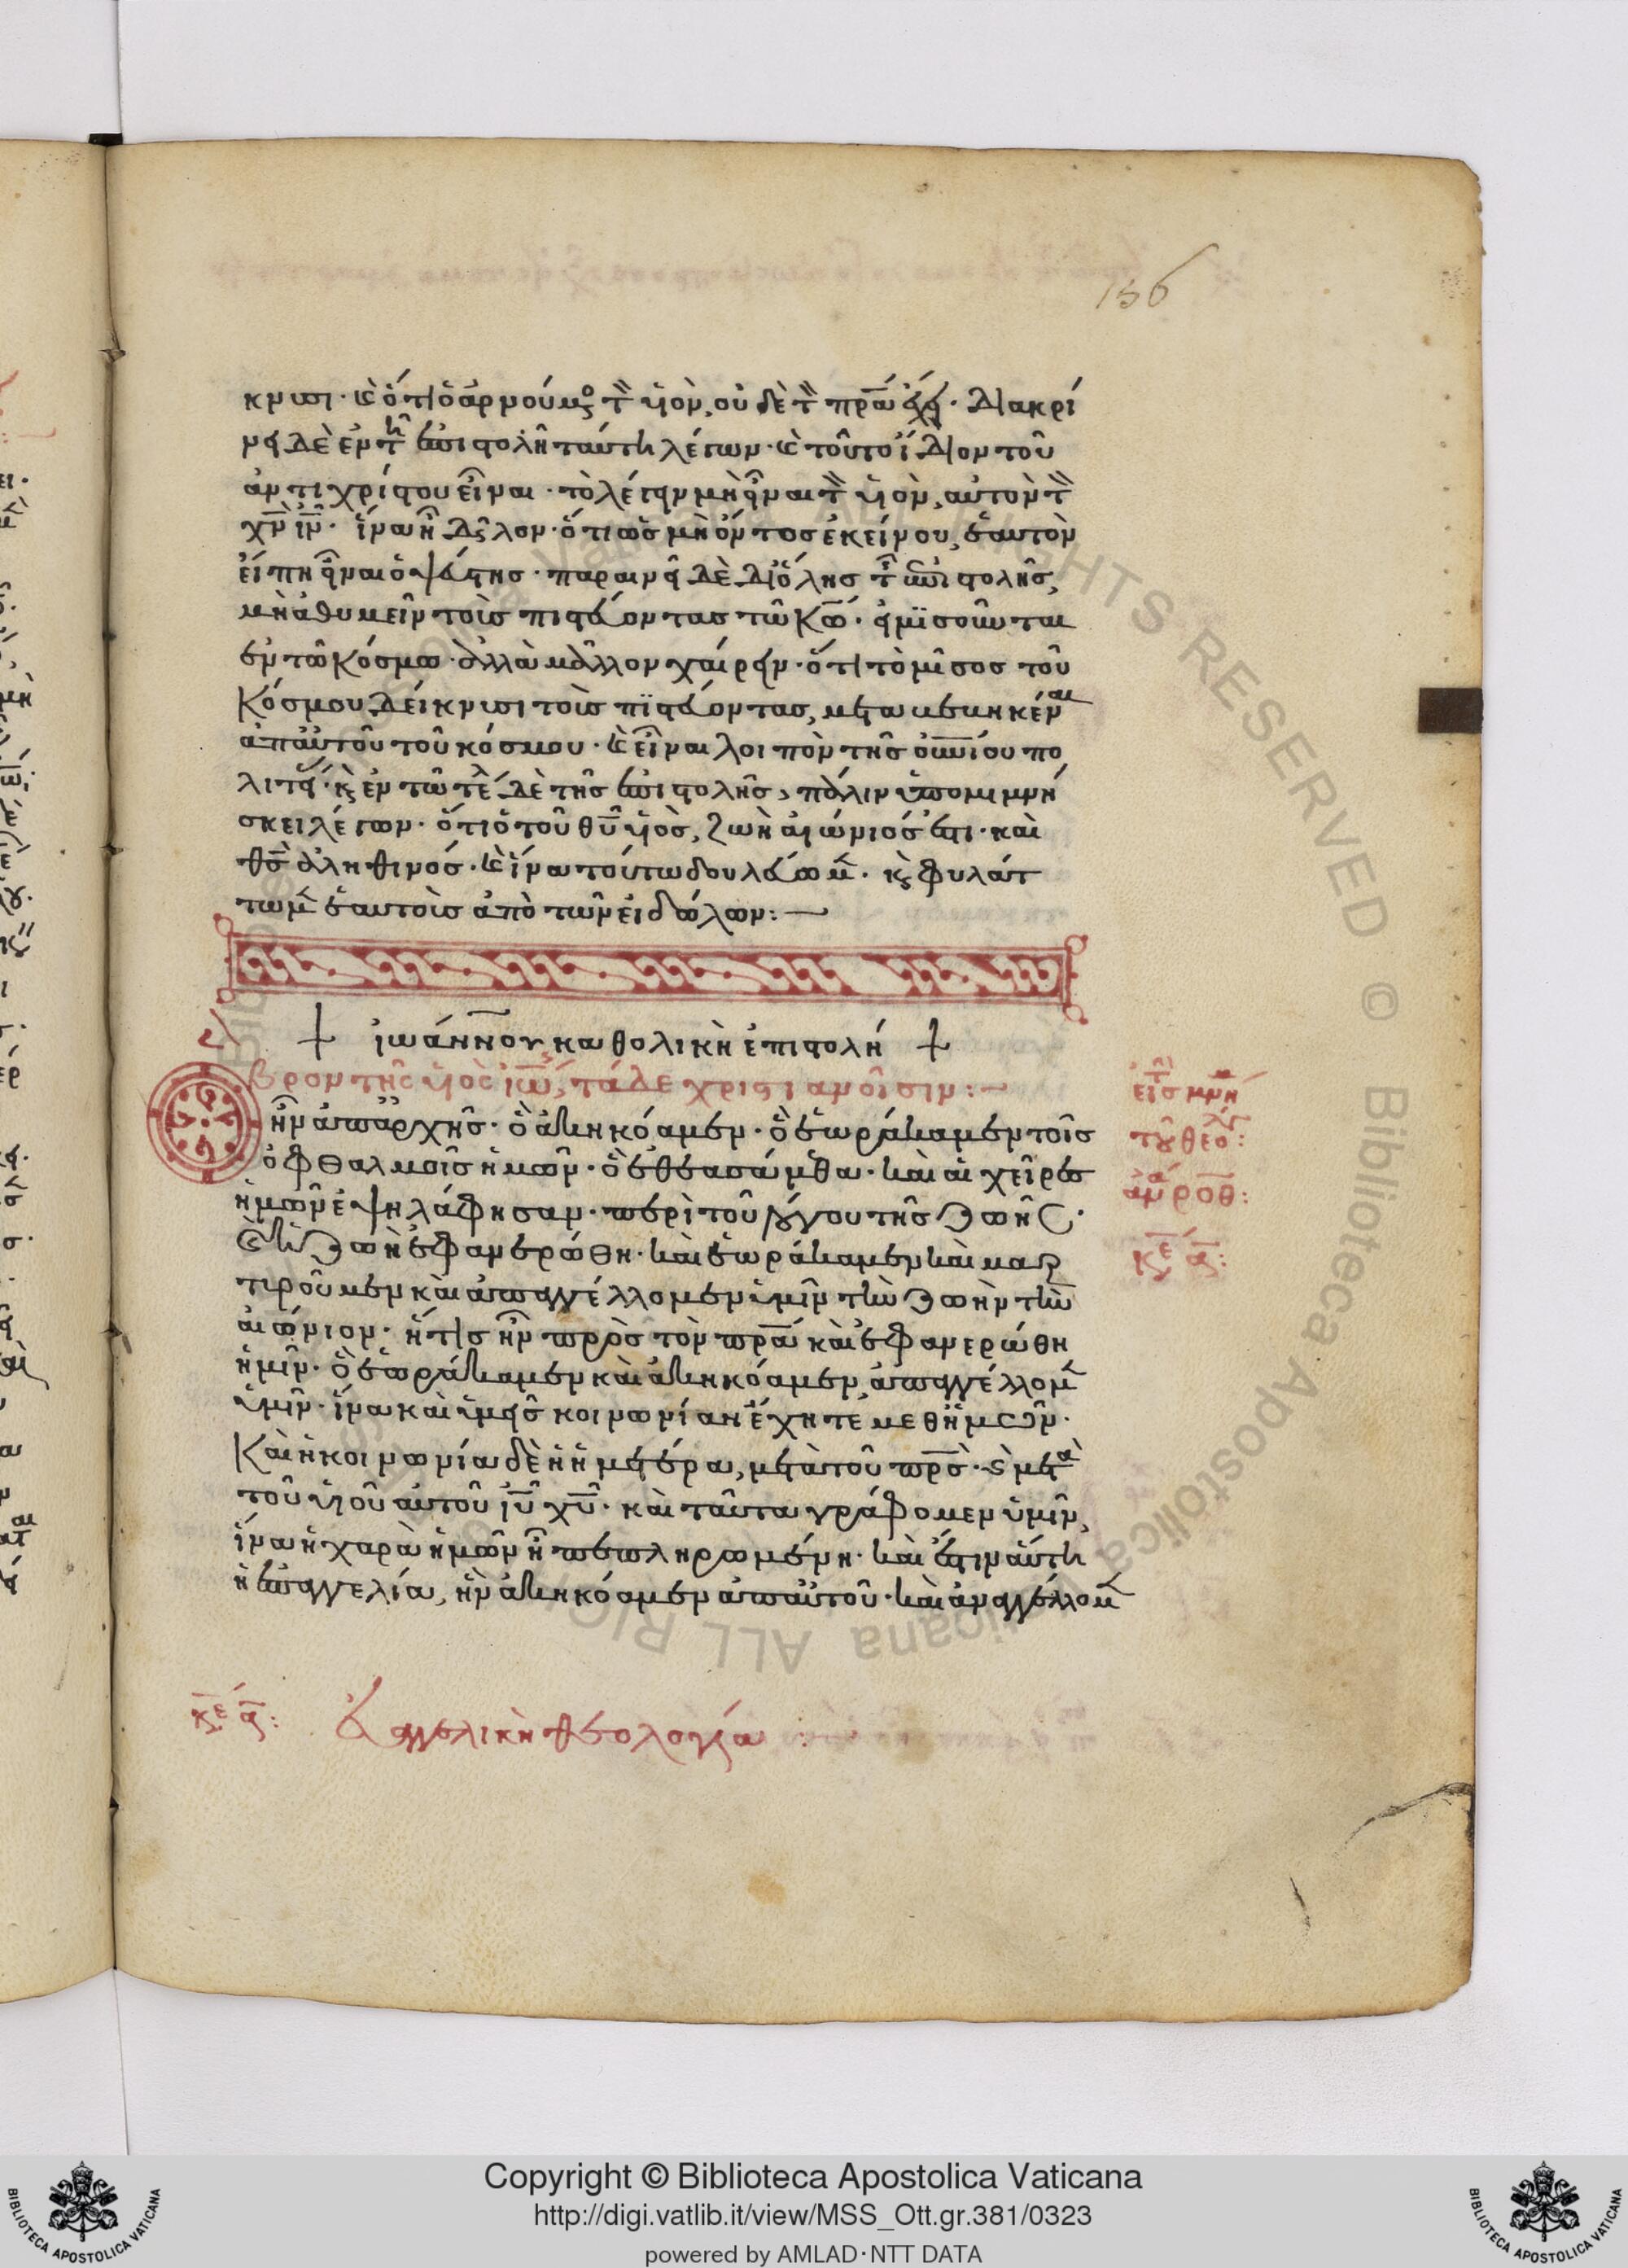 156
κνυσι· καὶ ὅτι ὁ ἀρνούμενος τὸν υἱὸν, οὐδὲ τὸν πρα ἔχει· διακρί
νει δὲ ἐν τῆ ἐπιστολῆ ταύτη λέγων· καὶ τοῦτο ἴδιον τοῦ
ἀντιχρίστου εἶναι· τὸ λέγειν μὴ εἶναι τὸν υἱὸν, αὐτὸν τὸν
χν ιν· ἵνα ἦ δῆλον· ὅτι ὡς μὴ ὄντος ἐκείνου, ἑαυτὸν
εἴπη εἶναι ὁ ψεύστης· παραινεῖ δὲ διόλης τῆς ἐπιστολῆς,
μὴ ἀθυμεῖν τοὺς πιστεύοντας τῶ κω· εἰ μισοῦνται
ἐν τῶ κόσμω· ἀλλὰ μᾶλλον χαίρειν· ὅτι τὸ μῖσος τοῦ
κόσμου, δείκνυσι τοὺς πιστεύοντας, μεταβεβηκέναι
ἀπ αὐτοῦ τοῦ κόσμου· καὶ εἶναι λοιπὸν τῆς οὐνίου πο
λιτεί· καὶ ἐν τῶ τέλ δὲ τῆς ἐπιστολῆς, πάλιν ὑπομιμνή
σκει λέγων· ὅτι ὁ τοῦ θυ υἱὸς, ζωὴ αἰώνιός ἐστι· καὶ
θς ἀληθινός· καὶ ἵνα τούτω δουλεύωμεν· καὶ φυλάτ
τωμεν ἑαυτοὺς ἀπὸ τῶν εἰδώλων:—
+ ἰωάννου καθολικὴ ἐπιστολή +
βροντῆς υἱὸς ἰω, τάδε χριστιανοῖσιν:—
Ο ἦν ἀπαρχῆς· ὃ ἀκηκόαμεν· ὃ ἑωράκαμεν τοῖς
ὀφθαλμοῖς ἡμῶν· ὃ ἐθεασάμεθα· καὶ αἱ χεῖρες
ἡμῶν ἐψηλάφησαν· περὶ τοῦ λόγου τῆς ζωῆς·
καὶ ἡ ζωὴ ἐφανερώθη· καὶ ἑωράκαμεν καὶ μαρ
τυροῦμεν καὶ ἀπαγγέλλομεν ὑμῖν τὴν ζωὴν τὴν
αἰώνιον· ἥτις ἦν πρὸς τὸν πρα καὶ ἐφανερώθη
ἡμῖν· ὃ ἑωράκαμεν καὶ ἀκηκόαμεν, ἀπαγγέλλομεν
ὑμῖν· ἵνα καὶ ὑμεῖς κοινωνίαν ἔχητε μεθ ἡμῶν·
Καὶ ἡ κοινωνία δὲ ἡ ἡμετέρα, μετὰ τοῦ πρς· καὶ μετὰ
τοῦ υἱοῦ αὐτοῦ ιυ χυ· καὶ ταῦτα γράφομεν ὑμῖν,
ἵνα ἡ χαρὰ ἡμῶν ἦ πεπληρωμένη· καὶ ἔστιν αὕτη
ἡ ἐπαγγελία, ἣν ἀκηκόαμεν ἀπ αὐτοῦ· καὶ ἀναγγέλλομεν
κε α: Εὐαγγελικὴ θεολογία :
Copyright © Biblioteca Apostolica Vaticana
http://digi.vatlib.it/view/MSS_Ott.gr.381/0323
powered by AMLAD·NTT DATA